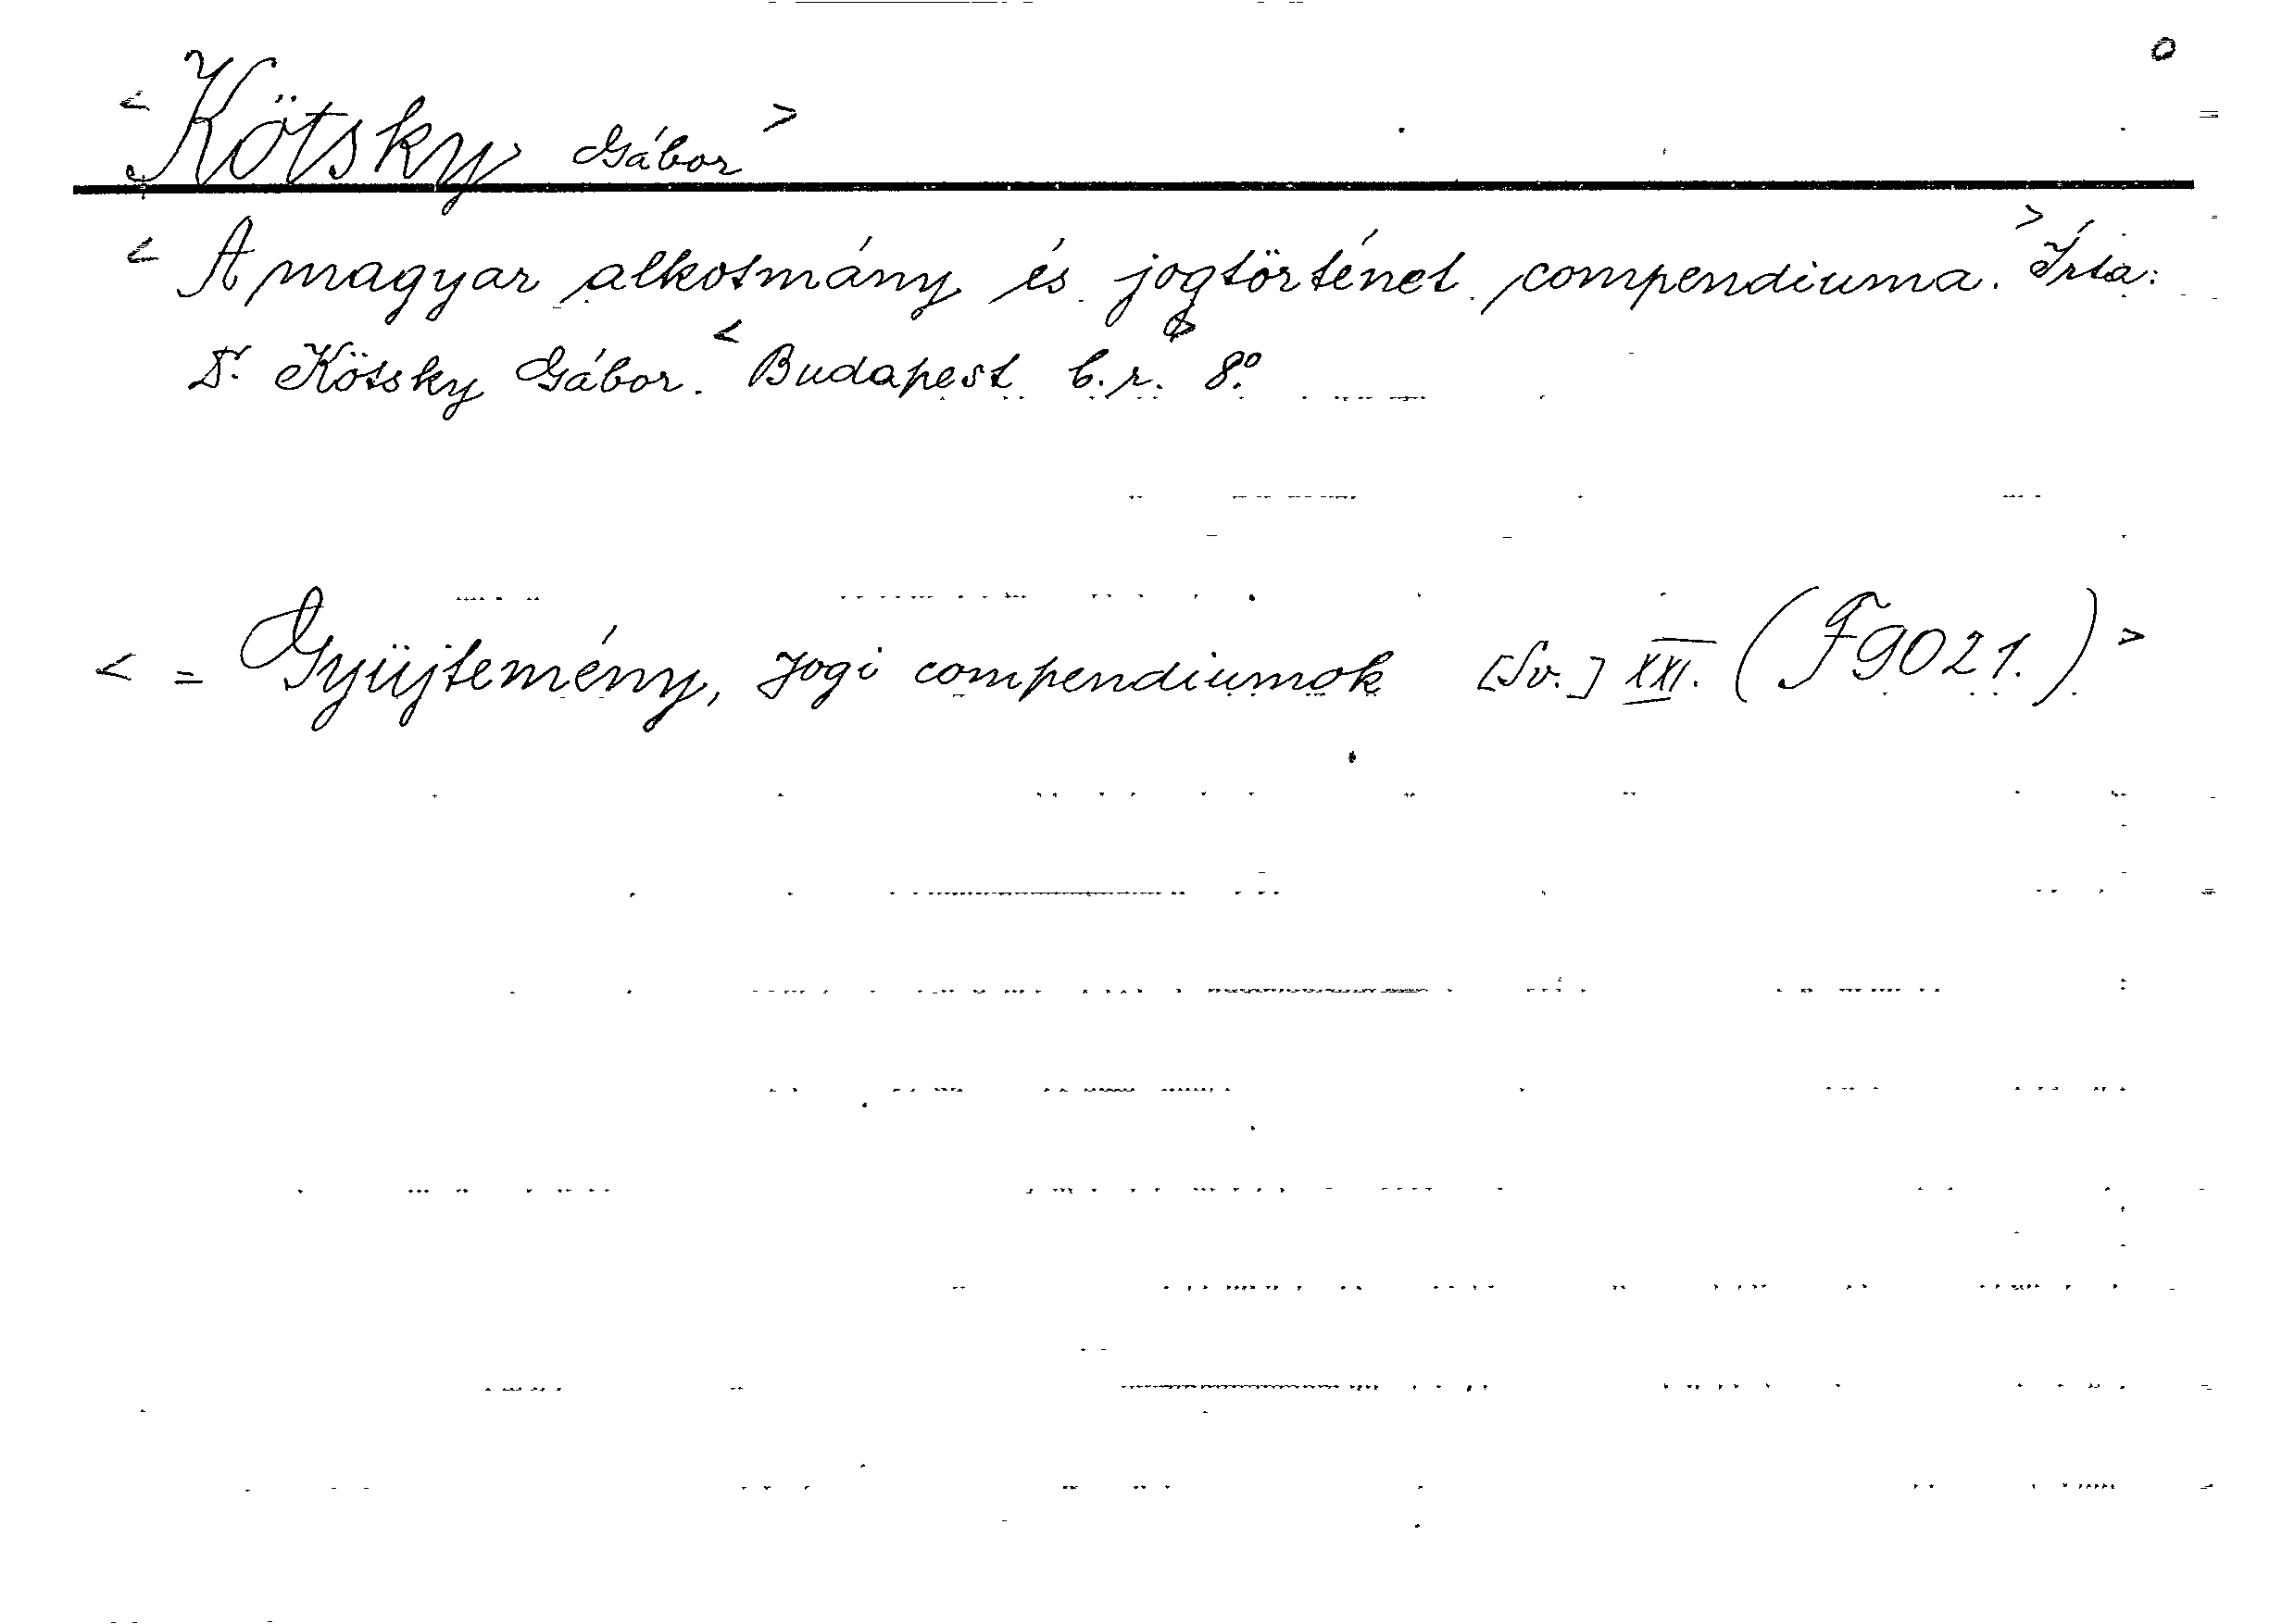 o
< Kötsky Gábor >
< A magyar alkotmány és jogtörténet compendiuma. > Írta:
Dr. Kötsky Gábor. < Budapest é.n. 8° >
< = Gyüjtemény, Jogi compendiumok [Sv.] XXI. (F9021.) >